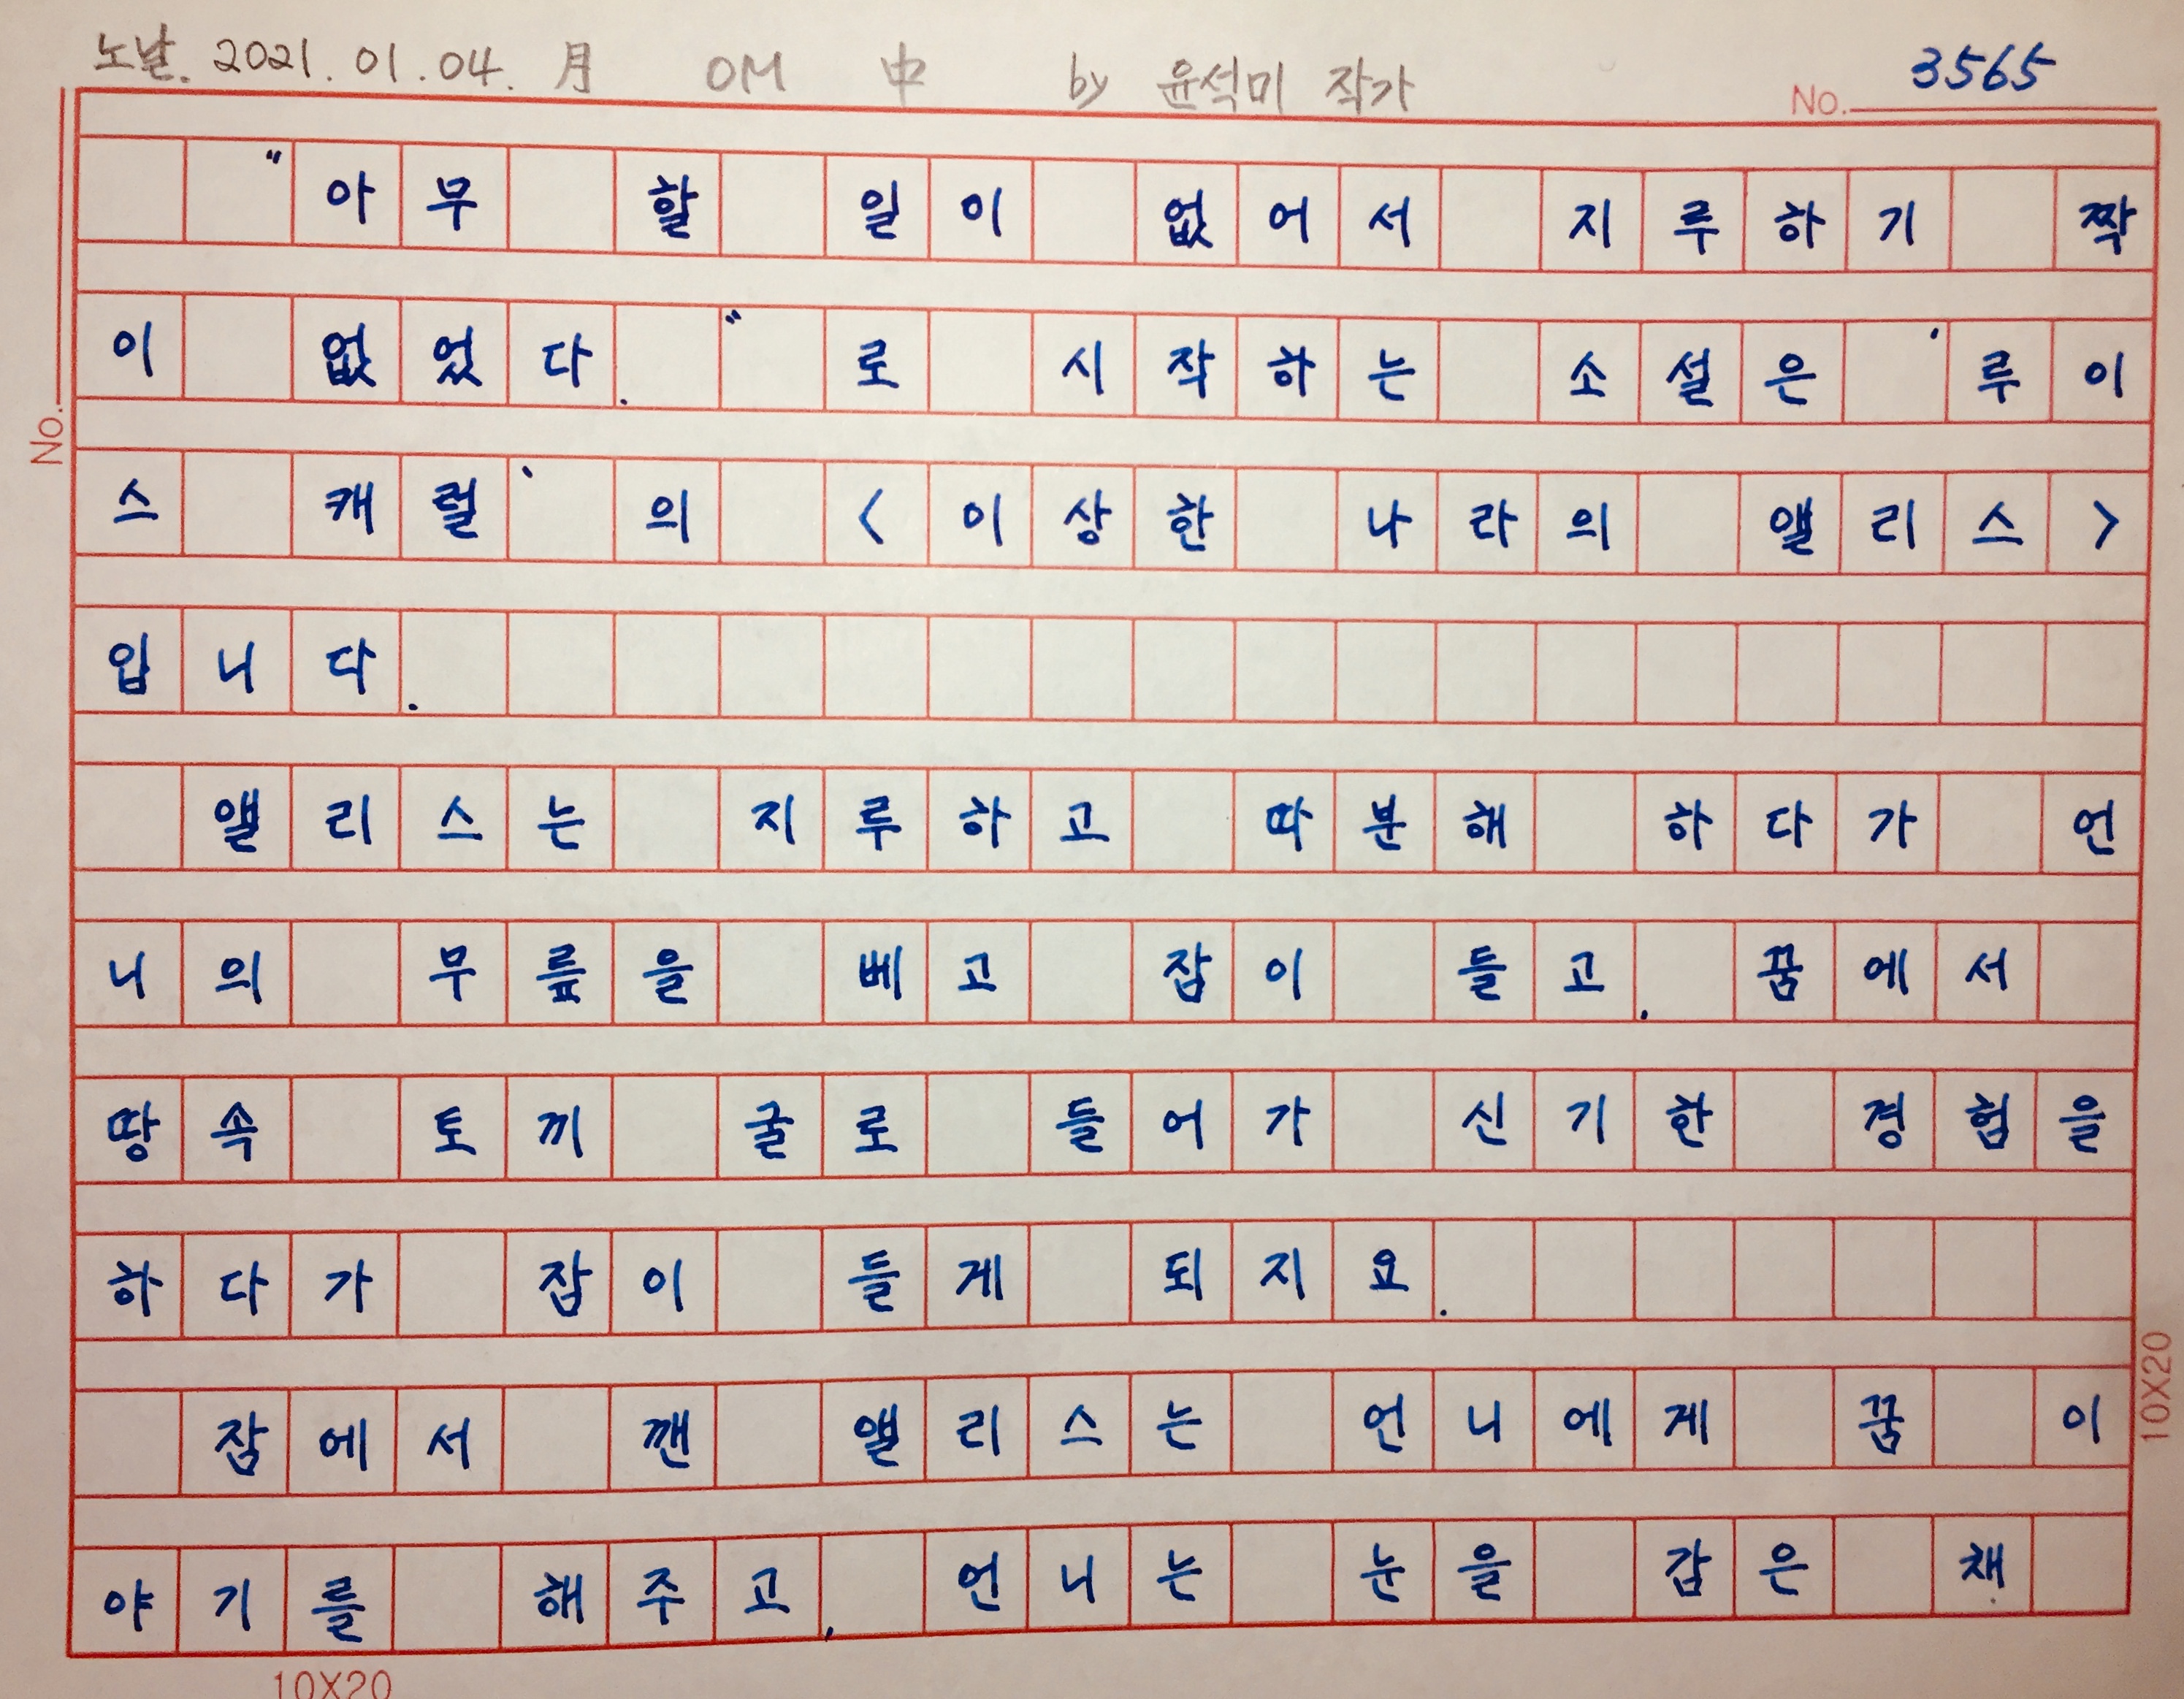 노날. 2021. 01. 04. 月 OM 中 by 윤석미 작가
No. 3565
"아무 할 일이 없어서 지루하기 짝
이 없었다." 로 시작하는 소설은 '루이
스 캐럴'의 <이상한 나라의 앨리스>
입니다.
앨리스는 지루하고 따분해 하다가 언
니의 무릎을 베고 잠이 들고, 꿈에서
땅속 토끼 굴로 들어가 신기한 경험을
하다가 잠이 들게 되지요.
잠에서 깬 앨리스는 언니에게 꿈 이
야기를 해주고, 언니는 눈을 감은 채
No.
10X20
10X20